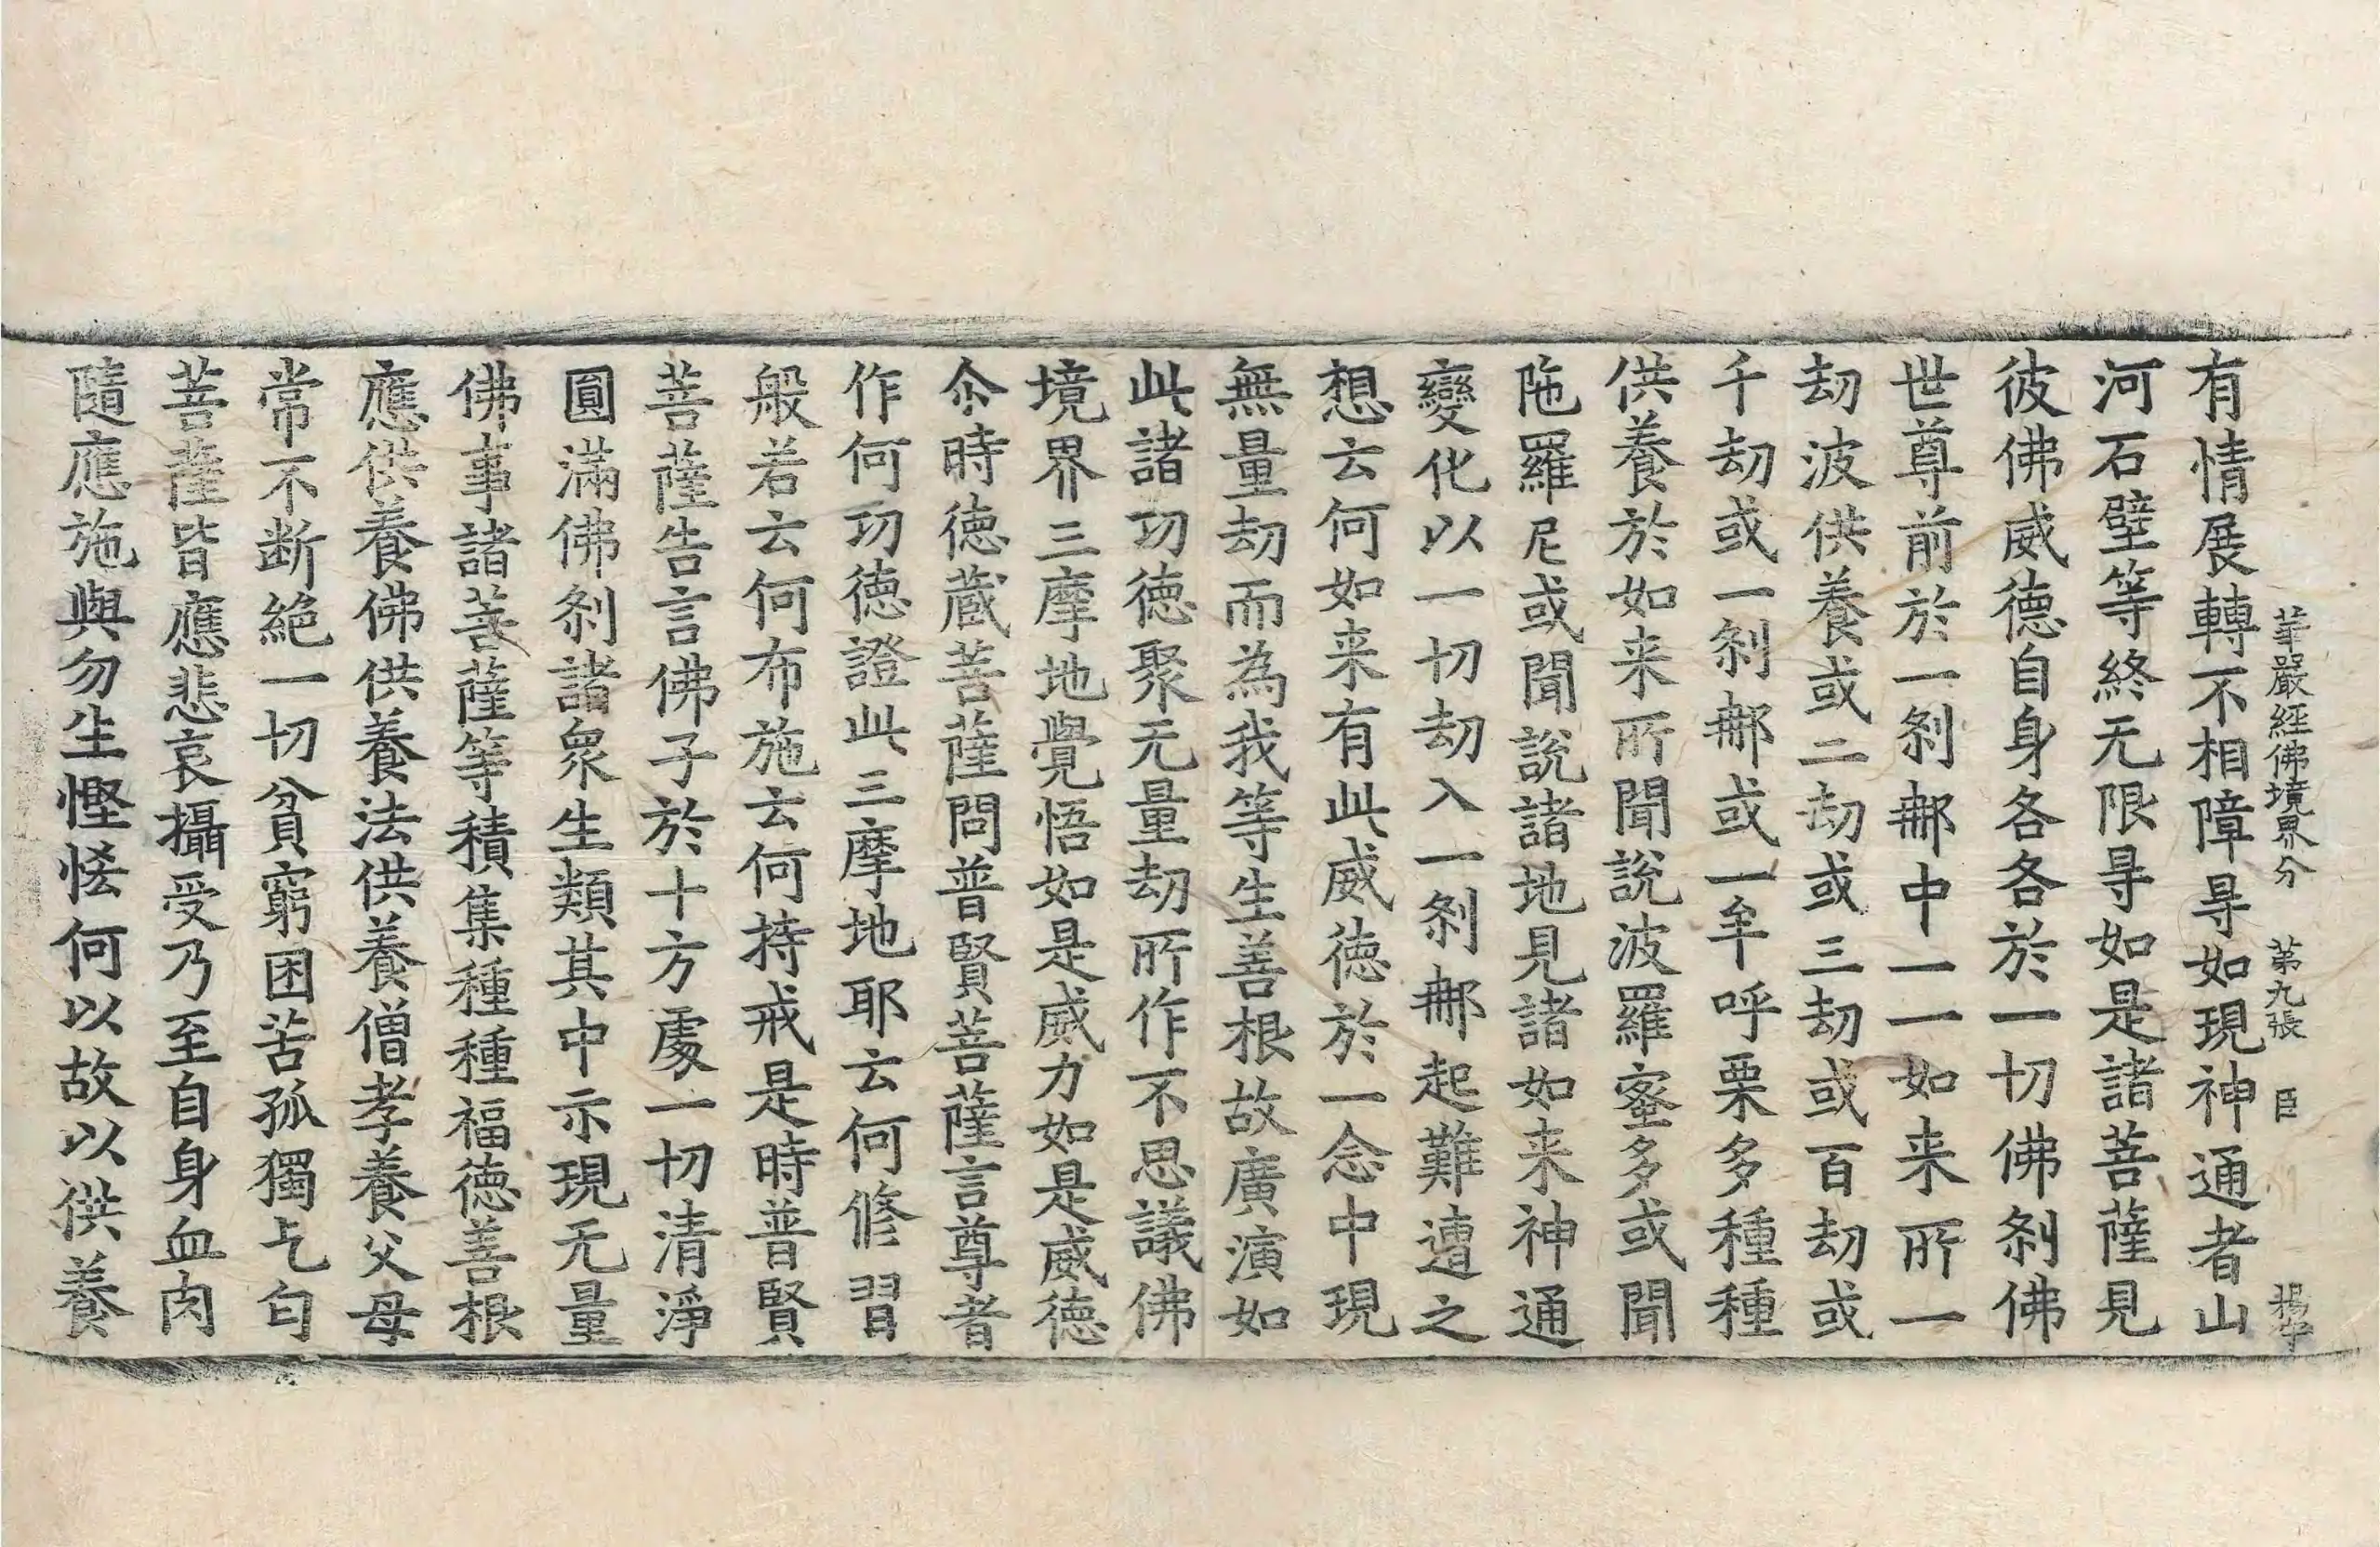 華嚴經佛境界分 第九張 臣
有情展轉不相障㝵如現神通者山
河石壁等終无限㝵如是諸菩薩見
彼佛威德自身各各於一切佛刹佛
世尊前於一刹那中一一如来所一
劫波供養或二劫或三劫或百劫或
千劫或一刹那或一牟呼栗多種種
供養於如来所聞說波羅蜜多或聞
陁羅尼或聞說諸地見諸如来神通
變化以一切劫入一刹那起難遭之
想云何如来有此威德於一念中現
無量劫而為我等生善根故廣演如
此諸功德聚无量劫所作不思議佛
境界三摩地覺悟如是威力如是威德
尒時德蔵菩薩問普賢菩薩言尊者
作何功德證此三摩地耶云何修習
般若云何布施云何持戒是時普賢
菩薩告言佛子於十方處一切清淨
圓滿佛刹諸衆生類其中示現无量
佛事諸菩薩等積集種種福德善根
應供養佛供養法供養僧孝養父母
常不断絶一切貧窮困苦孤獨乞匄
菩薩皆應悲哀攝受乃至自身血肉
隨應施與勿生慳悋何以故以供養